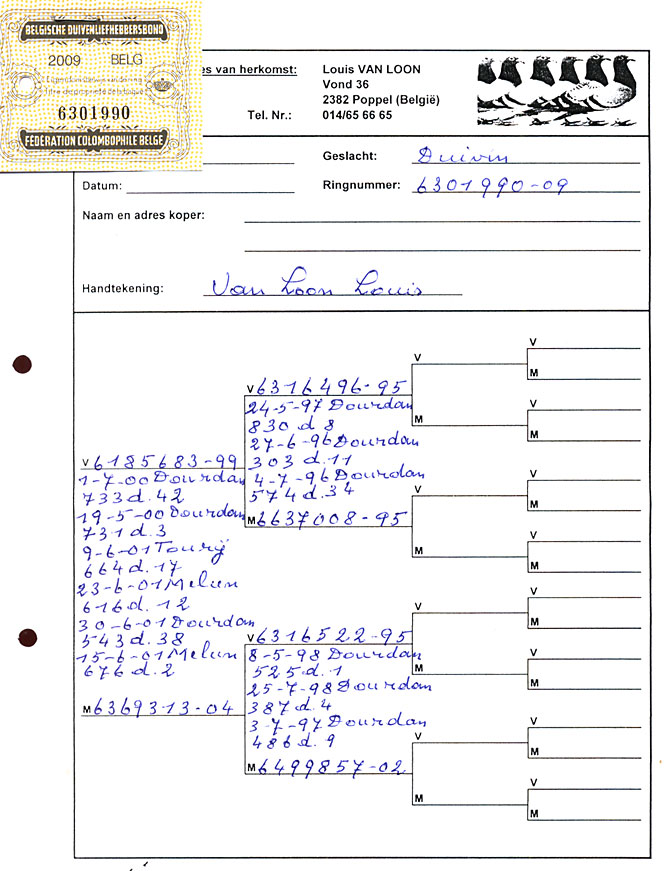 BELGISCHE DUIVENLIEFHEBBERSBOND
2009 BELG
6301990
FEDERATION COLOMBOPHILE BELGE
es van herkomst: Louis VAN LOON
Vond 36
2382 Poppel (België)
Tel. Nr.: 014/65 66 65
Geslacht: Duivin
Datum: Ringnummer: 6301990-09
Naam en adres koper:
Handtekening: Van Loon Louis
V 6185683-99
1-7-00 Dourdan
733 d. 42
19-5-00 Dourdan
731 d. 3
9-6-01 Toury
664 d. 17
23-6-01 Melun
616 d. 12
30-6-01 Dourdan
543 d. 38
15-6-01 Melun
676 d. 2
M 6369313-04
V 6316496-95
24-5-97 Dourdan
830 d 8
27-6-96 Dourdan
303 d. 11
4-7-96 Dourdan
574 d. 34
M 6637008-95
V 6316522-95
8-5-98 Dourdan
525 d. 1
25-7-98 Dourdan
387 d. 4
3-7-97 Dourdan
486 d. 9
M 6499857-02
V
M
V
M
V
M
V
M
V
M
V
M
V
M
V
M
V
M
V
M
V
M
V
M